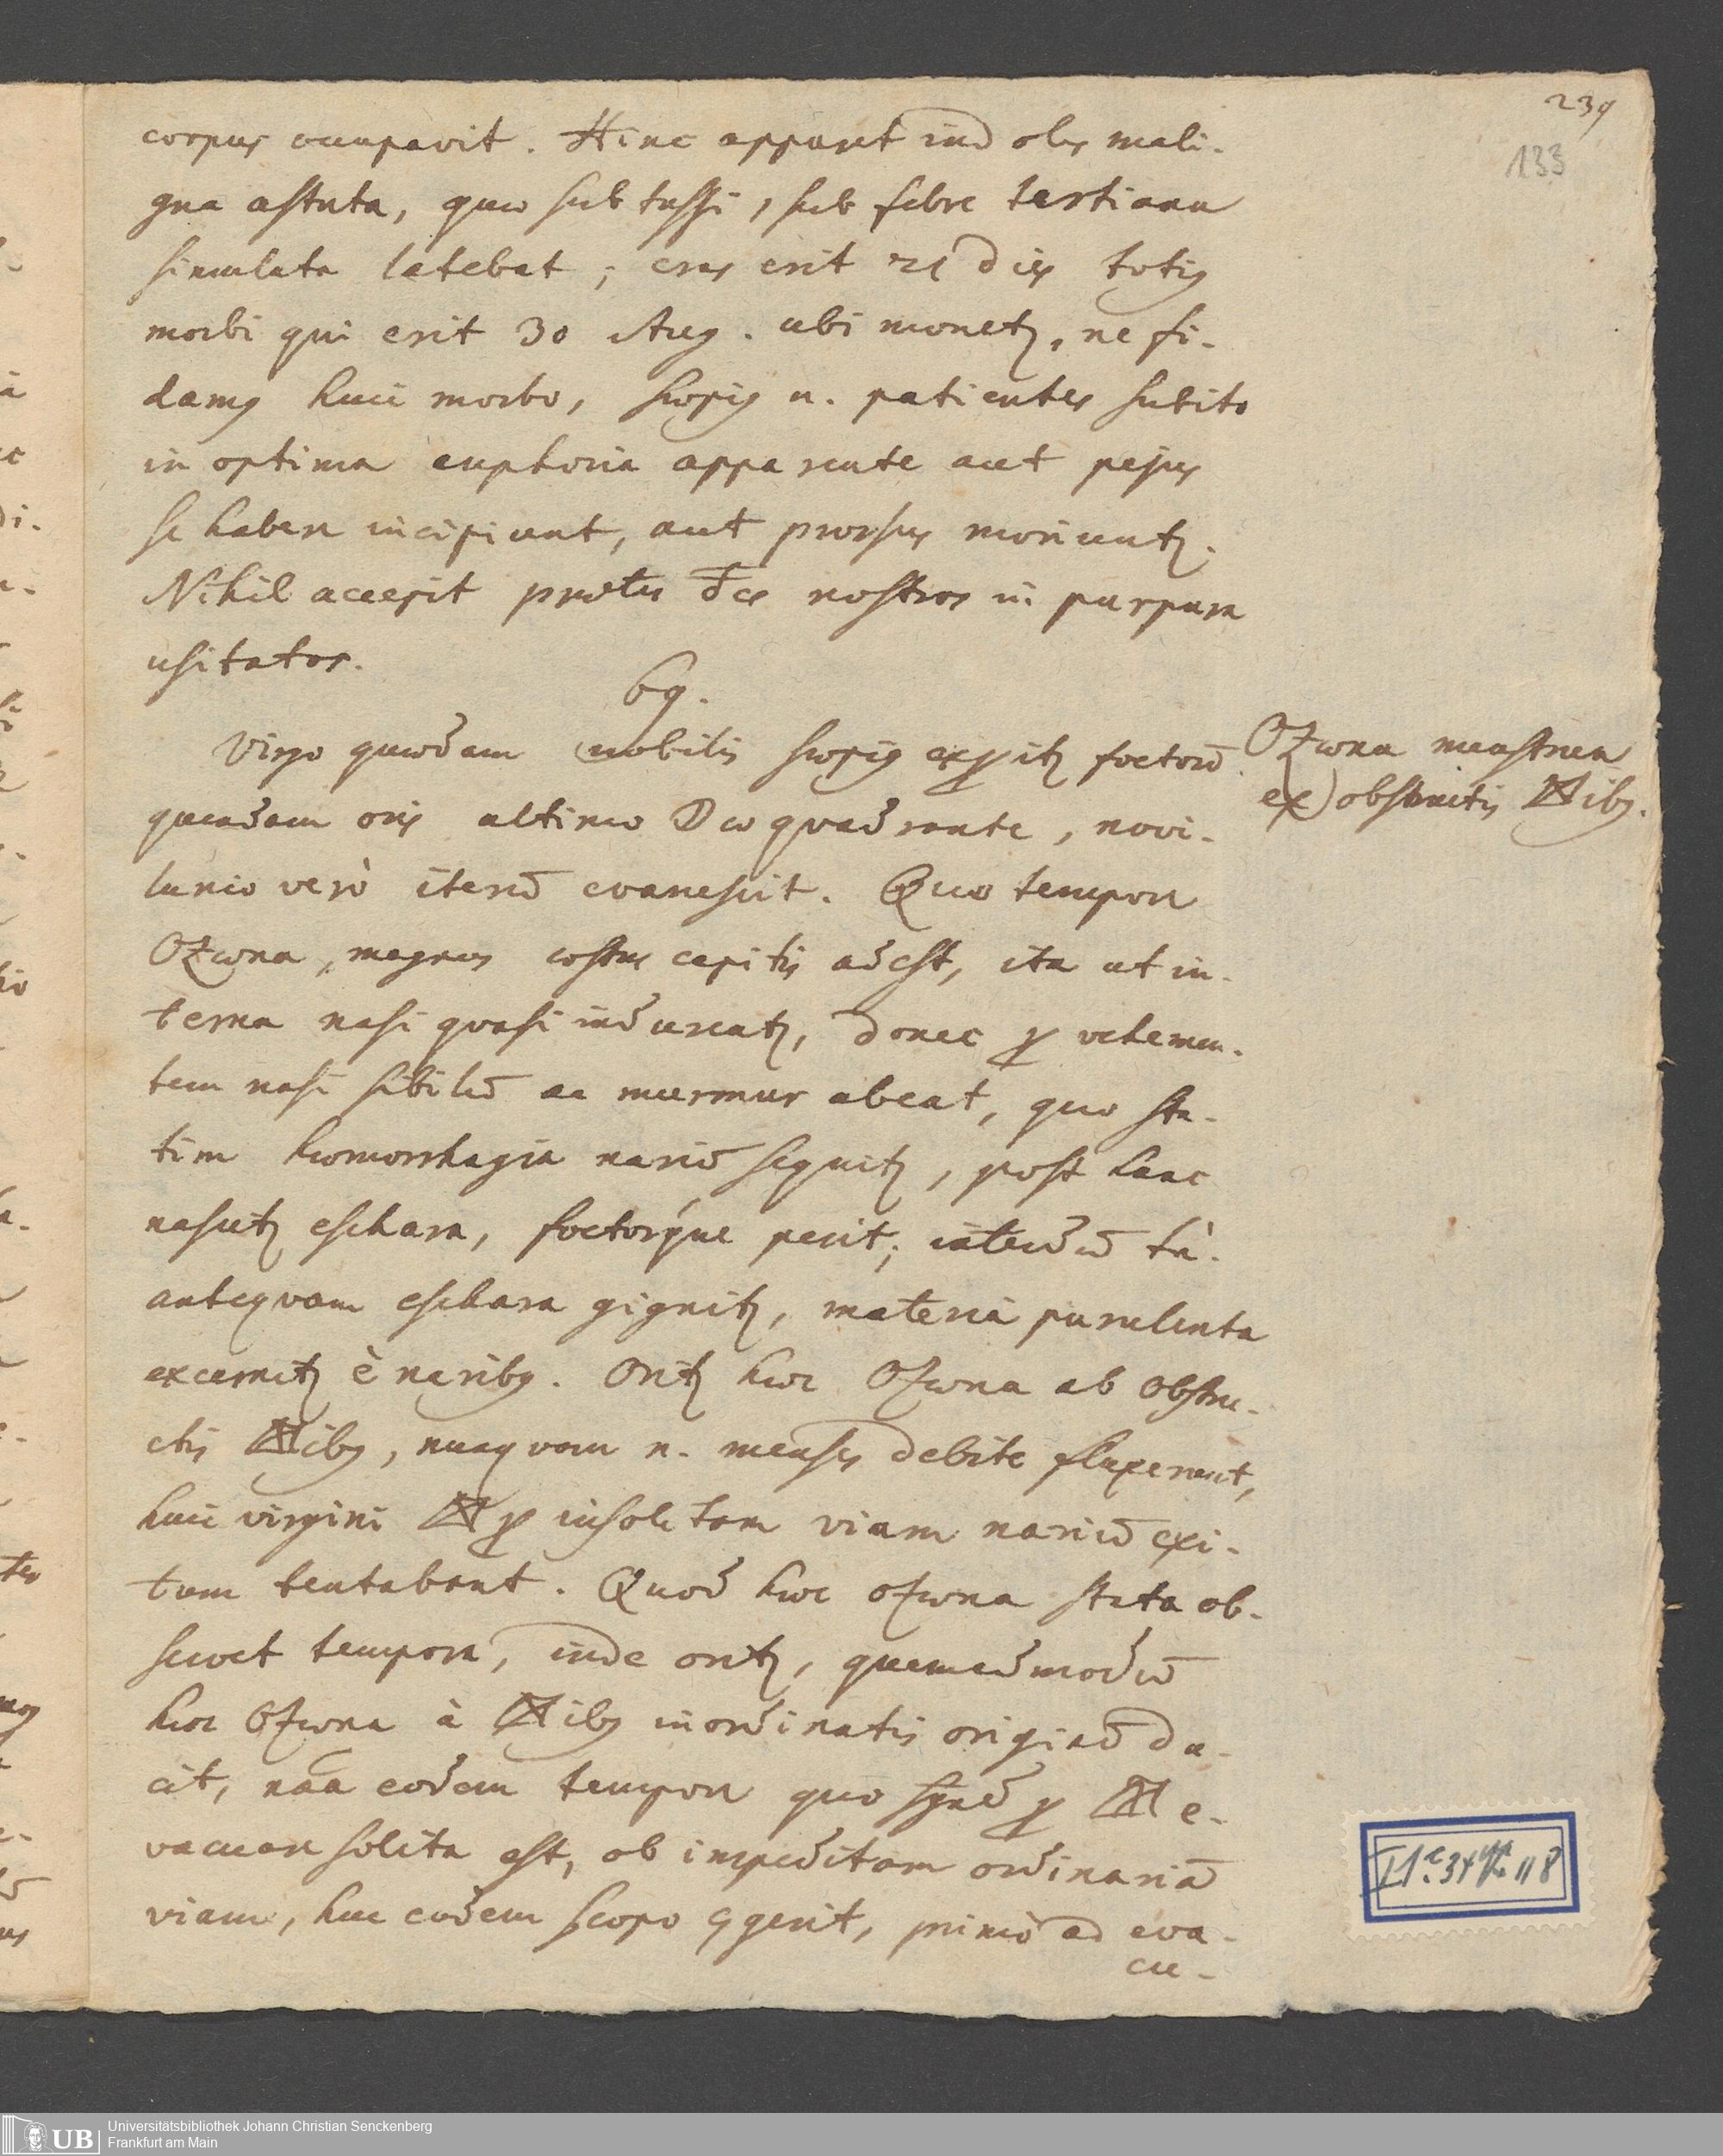 239
133
corpus occupavit. Hinc apparet indoles mali-
gna astuta, quæ sub tussi, sub febre tertiana
simulata latebat; cras erit 21 dies totiꝰ
morbi qui erit 30 Aug. ubi monetꝛ, ne fi-
damꝰ huic morbo, sæpiꝰ n. patientes subito
in optima euphoria apparente aut pejus
se habere incipiunt, aut prorsus moriuntꝛ.
Nihil accepit præter nostros in purpura
usitatos.
69.
Virgo quædam nobilis sæpiꝰ exꝑitꝛ foetorē
quendam oris ultimo ☽æ quadrante, novi-
lunio verò iterū evanescit. Quo tempore
Ozæna, magnus æstus capitis adest, ita ut in-
terna nasi quasi indurentꝛ, donec ꝑ vehemen-
tem nasi sibilū ac murmur abeat, quo sta-
tim hæmorrhagia nariū sequitꝛ, post hanc
nascitꝛ eschara, foetorq́ue perit; interdū tñ.
antequam eschara gignitꝛ, materia purulenta
excernitꝛ è naribꝰ. Oritꝛ hæc Ozæna ab obstru-
ctis ibꝰ, nunquam n. menses debite fluxerunt,
huic virgini ꝑ insolitam viam nariū exi-
tum tentabant. Quod hæc ozæna stata ob-
servet tempora, inde oritꝛ, quemadmodū
hæc Ozæna à ibꝰ inordinatis originē du-
cit, nāa eodem tempore quo ꝑ e-
vacuare solita est, ob impeditam ordinariā
viam, huc eodem scopo ꝯgerit, primò ad eva-
cu-
Ozæna menstrua
ex obstructis ibꝰ.
Universitätsbibliothek Johann Christian Senckenberg
Frankfurt am Main
UB